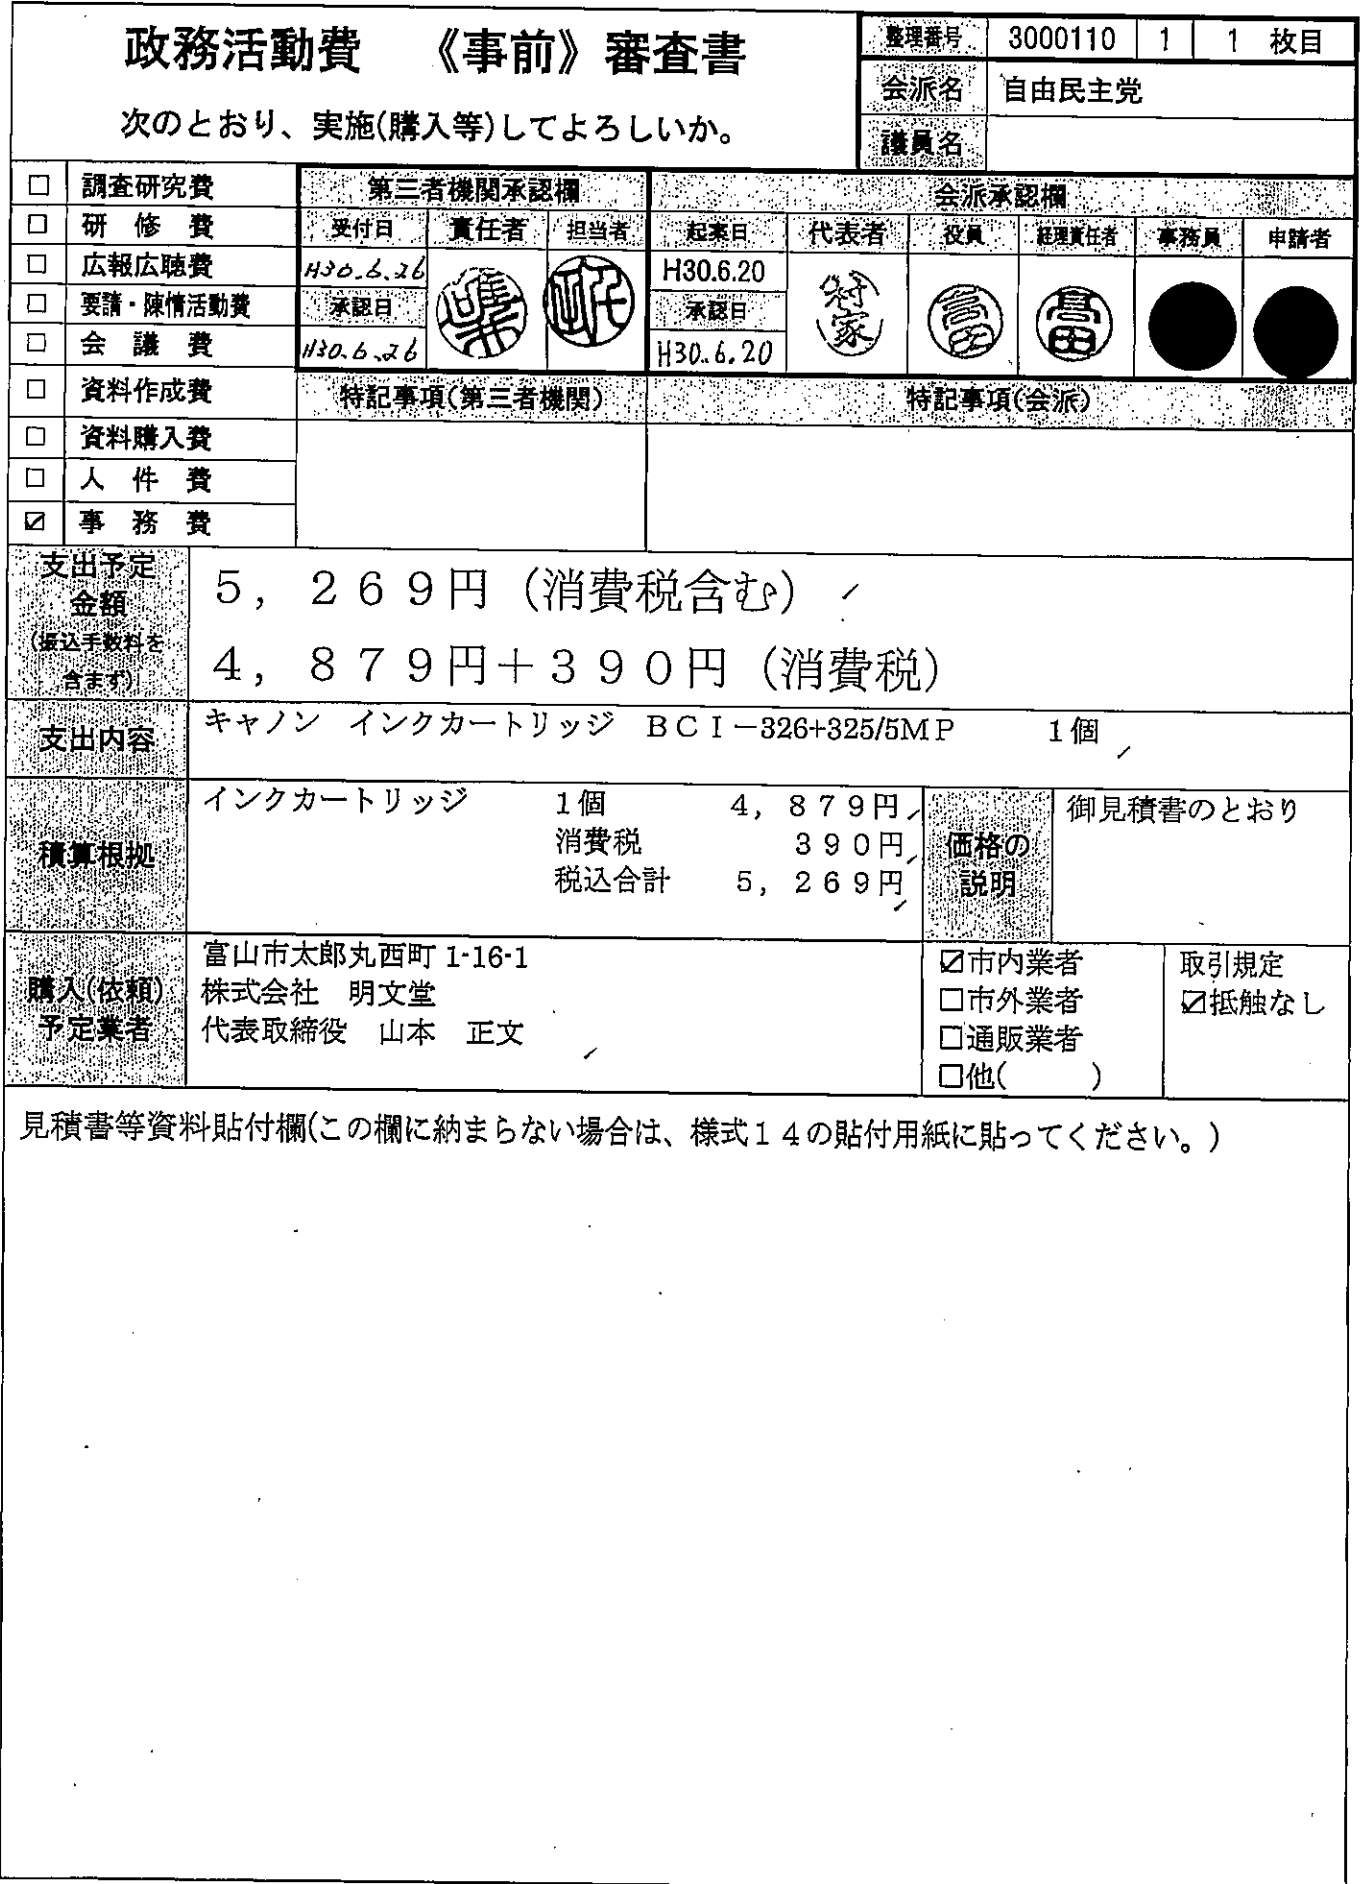 政務活動費 《事前》審査書
次のとおり、実施(購入等)してよろしいか。
整理番号 3000110 1 1 枚目
会派名 自由民主党
議員名
□ 調査研究費
□ 研修費
□ 広報広聴費
□ 要請・陳情活動費
□ 会議費
□ 資料作成費
□ 資料購入費
□ 人件費
☑ 事務費
第三者機関承認欄
受付日 責任者 担当者
H30.6.26
承認日
H30.6.26
会派承認欄
起案日 代表者 役員 経理責任者 事務員 申請者
H30.6.20
承認日
H30.6.20
高田
特記事項(第三者機関) 特記事項(会派)
支出予定
金額
(振込手数料を
含まず)
5,269円(消費税含む)
4,879円+390円(消費税)
支出内容
キャノン インクカートリッジ BCI-326+325/5MP 1個
積算根拠
インクカートリッジ 1個 4,879円
消費税 390円
税込合計 5,269円
価格の
説明
御見積書のとおり
購入(依頼)
予定業者
富山市太郎丸西町1-16-1
株式会社 明文堂
代表取締役 山本 正文
☑市内業者
□市外業者
□通販業者
□他( )
取引規定
☑抵触なし
見積書等資料貼付欄(この欄に納まらない場合は、様式14の貼付用紙に貼ってください。)